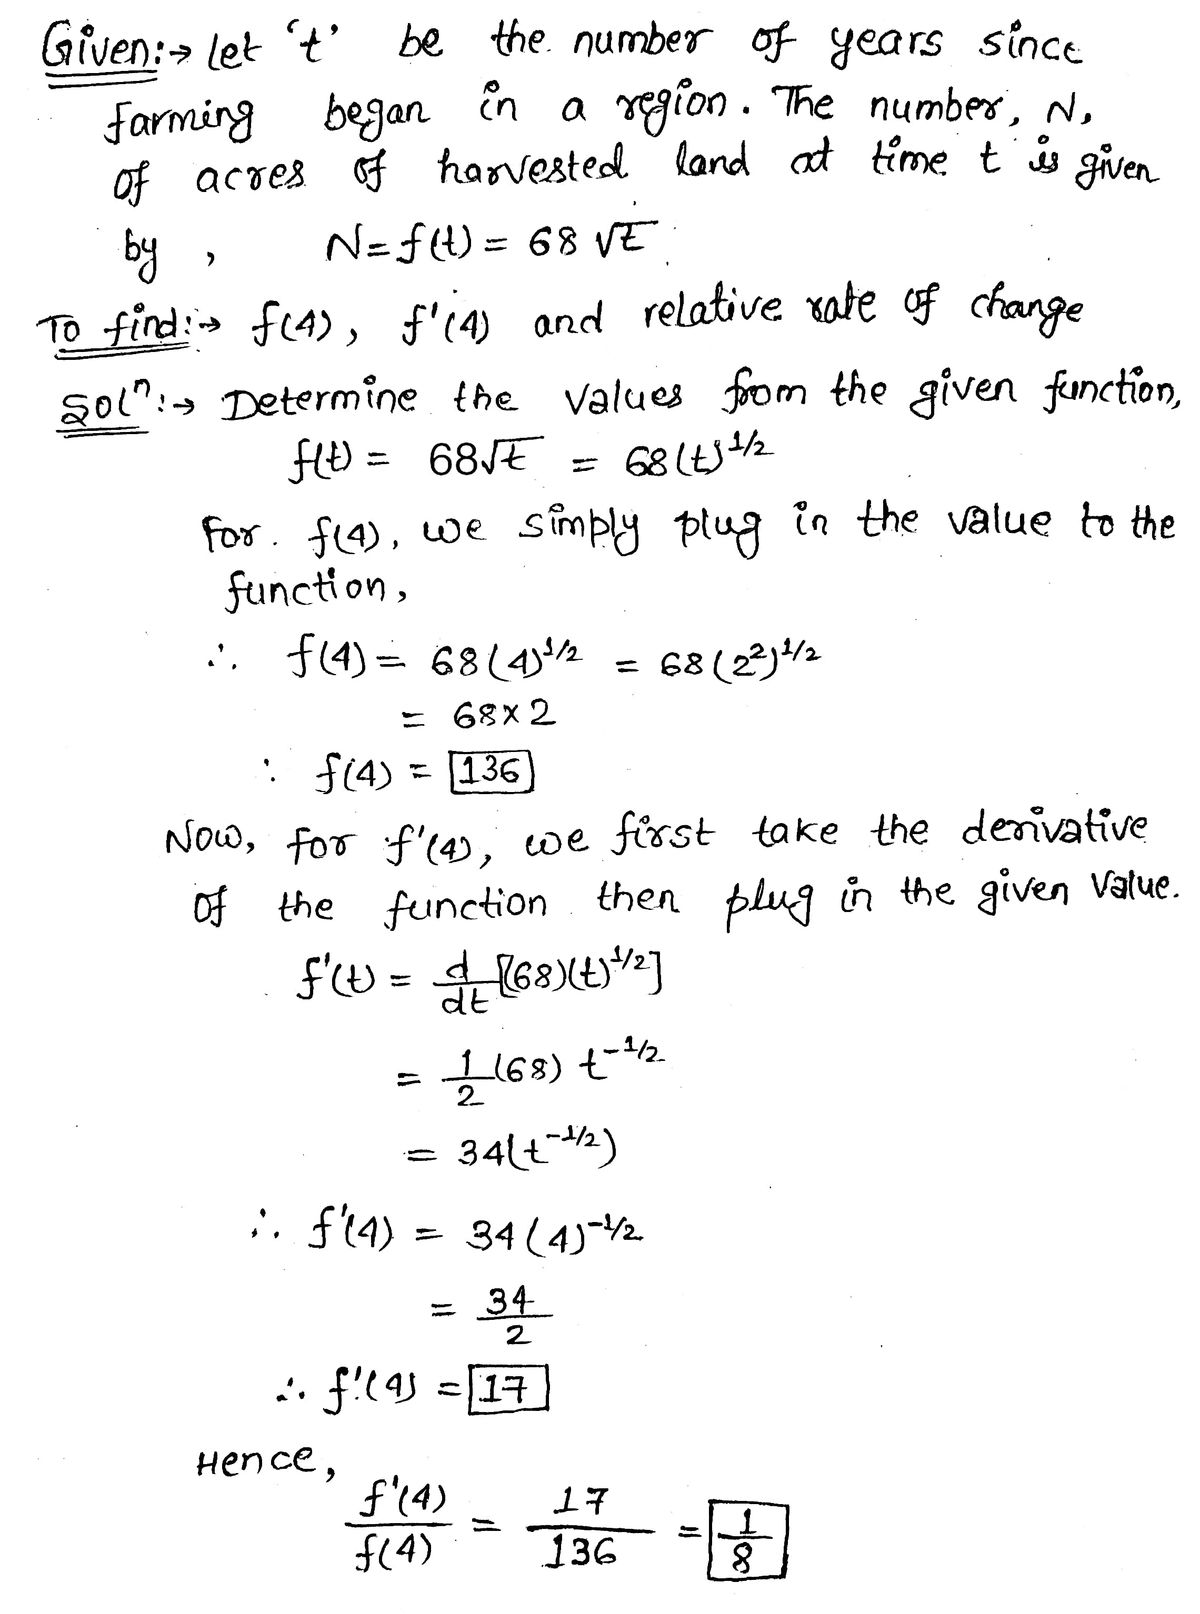 Given:→ let 't' be the number of years since
farming began in a region. The number, N,
of acres of harvested land at time t is given
by, N=f(t) = 68 √t
To find:→ f(4), f'(4) and relative rate of change
Solⁿ:→ Determine the values from the given function,
f(t) = 68√t = 68(t)^1/2
For f(4), we simply plug in the value to the
function,
∴ f(4) = 68(4)^1/2 = 68(2²)^1/2
= 68×2
∴ f(4) = 136
Now, for f'(4), we first take the derivative
of the function then plug in the given value.
f'(t) = d/dt [(68)(t)^1/2]
= 1/2 (68) t^-1/2
= 34(t^-1/2)
∴ f'(4) = 34(4)^-1/2
= 34/2
∴ f'(4) = 17
Hence,
f'(4)/f(4) = 17/136 = 1/8